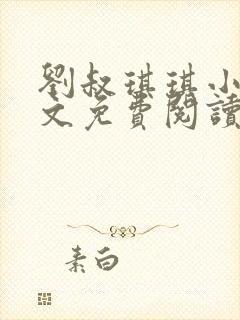 劉叔琪琪小
文免費閱讀
素白